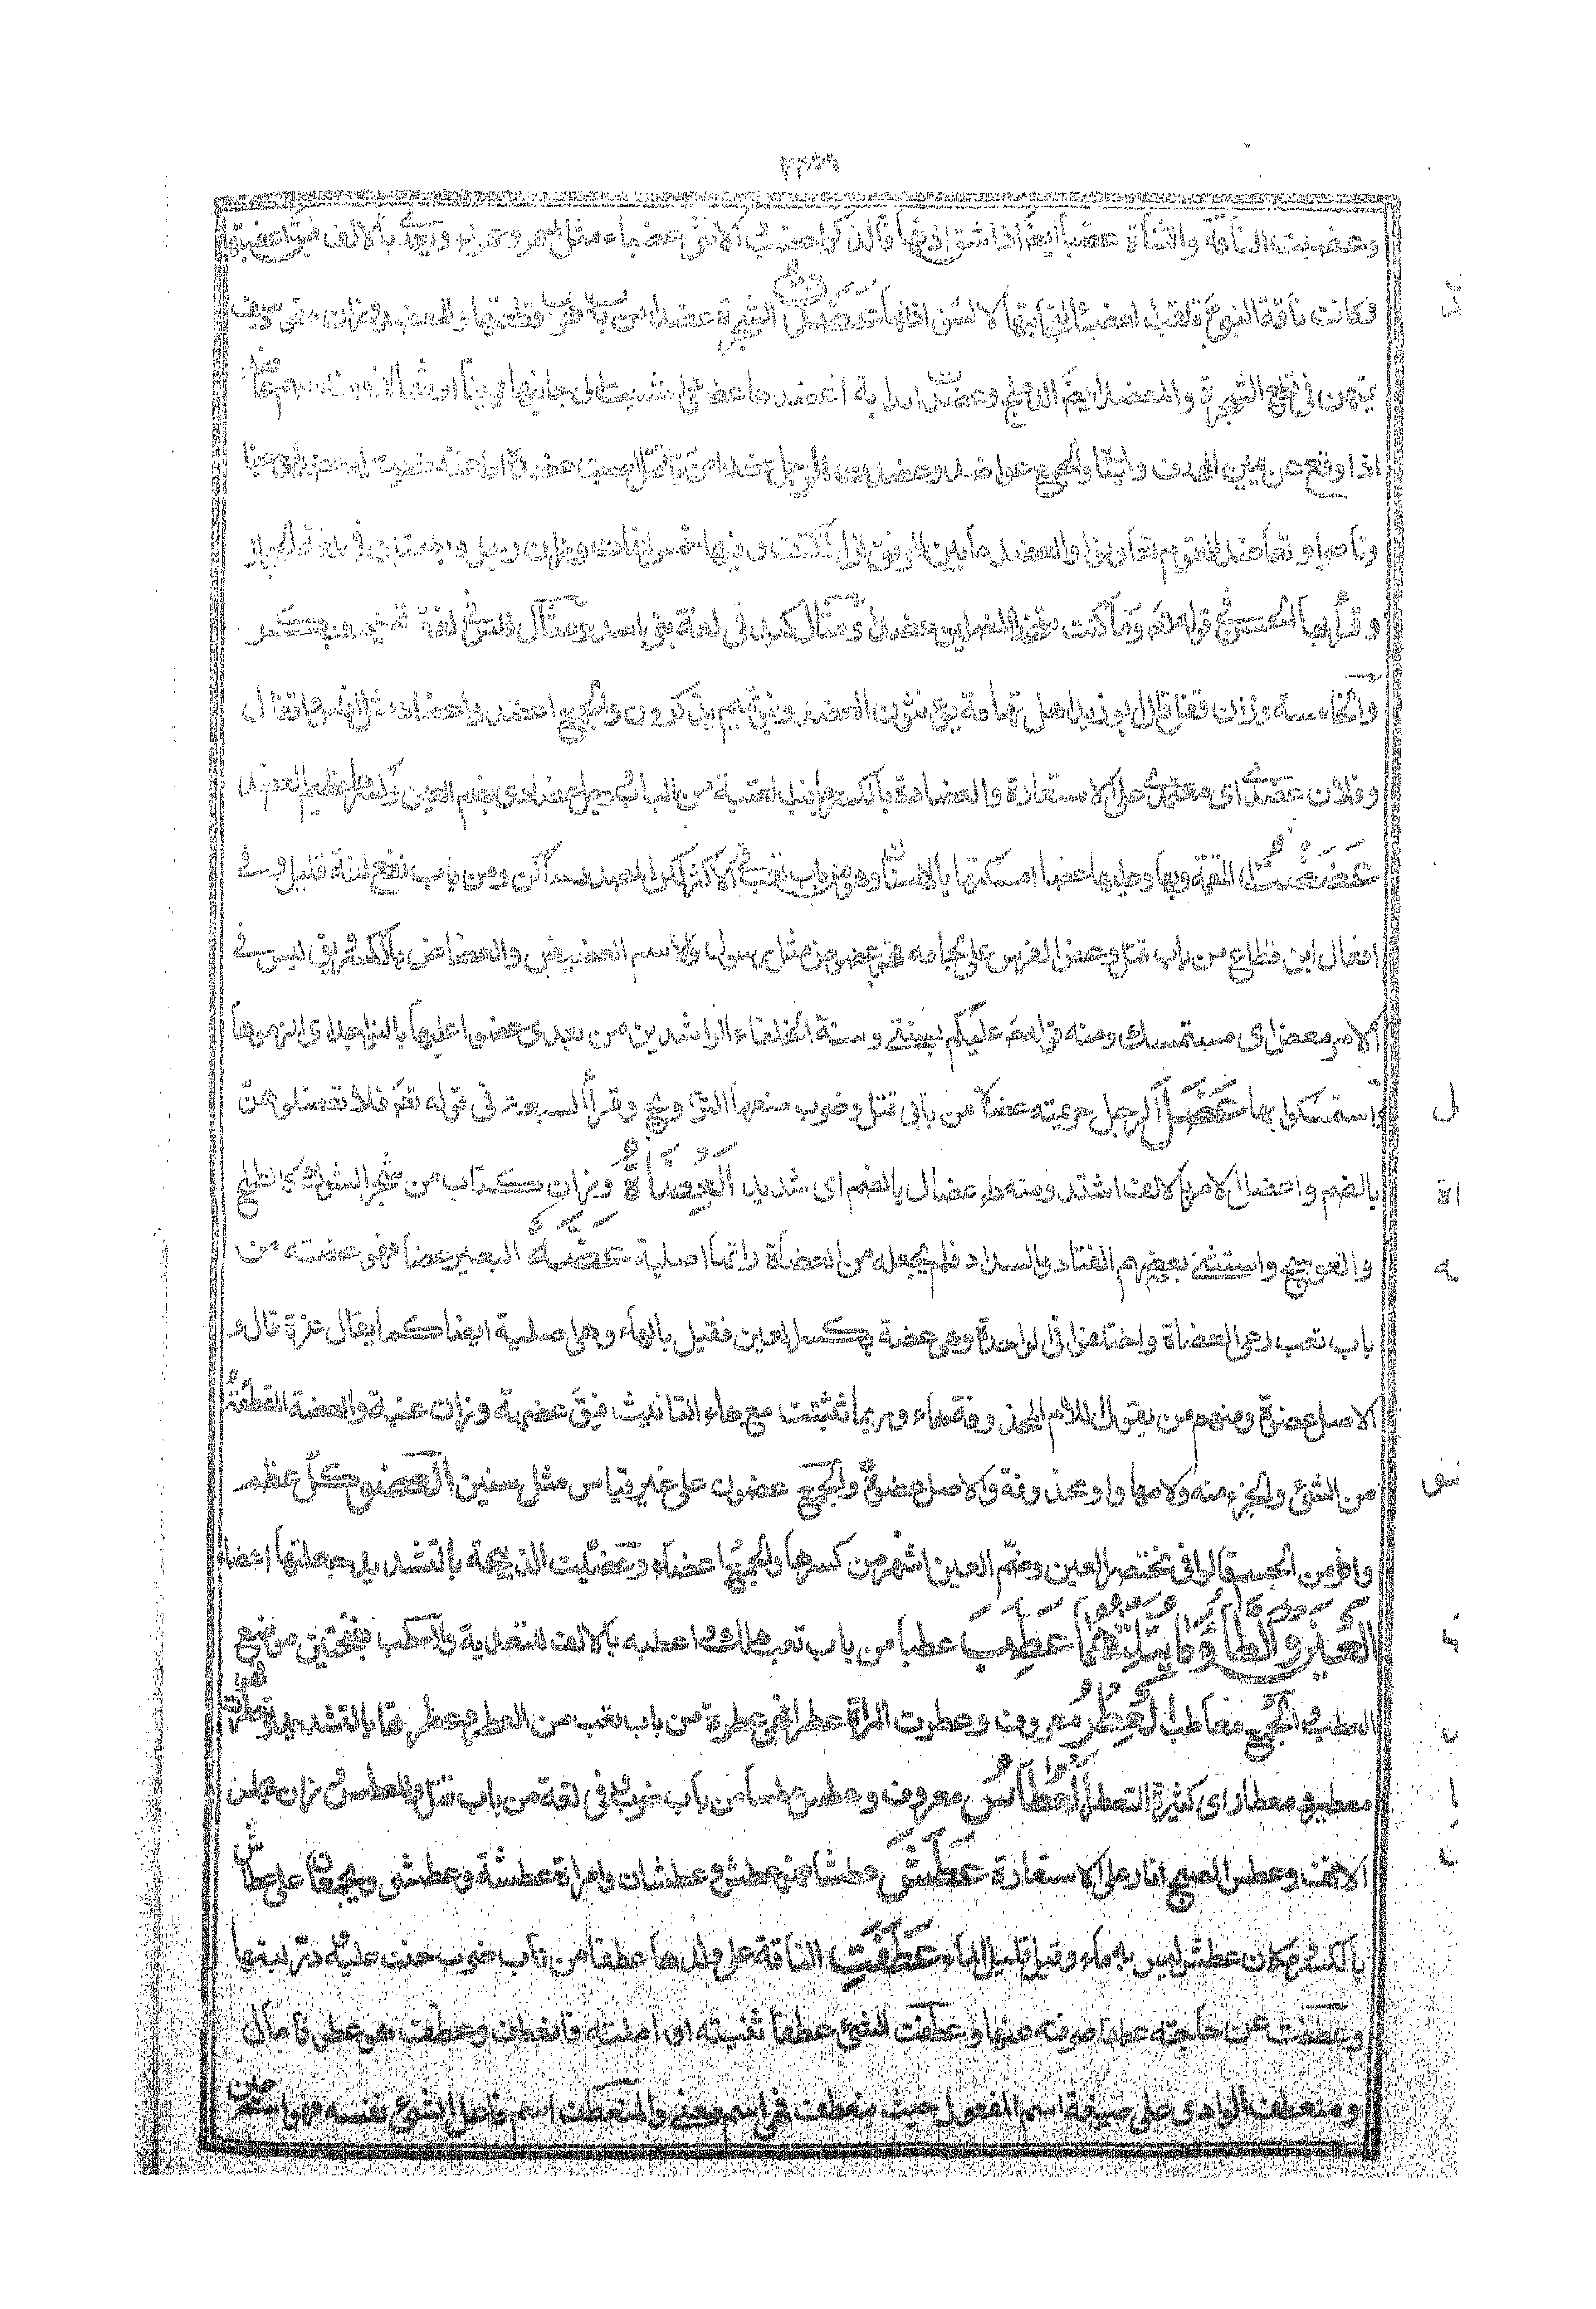 وعضبت الناقة والشاة عضبا ايضا اذا شق اذنها فالذكر اعضب والانثى عضباء مثل احمر وحمراء ويعدى بالالف فيق اعضبتها
فكانت ناقة النبي تلقب العضباء لنجابتها لا لشق اذنها عضدت الشجرة عضدا من باب ضرب قطعتها والمعضد وزان سيف
يمتهن في قطع الشجرة والمعضد ايضا الدملج وعضدت الدابة اعضدها
اذا وقع عن يمين الهدف والجمع عواضد وعضدت الرجل عضدا من باب قتل اصبت عضده او اعنته فصرت له عضدا اي معينا
وناصرا وتعاضد القوم تعاونوا والعضد ما بين المرفق الى الكتف وفيها خمس لغات وزان رجل وبضمتين في لغة الحجاز
وقرأ بها الحسن في قوله تع وما كنت متخذ المضلين عضدا ومثال كبد في لغة بني اسد ومثال فلس في لغة تميم وبكر
والخامسة وزان قفل قال ابو زيد اهل تهامة يؤنثون العضد وبنو تميم يذكرون والجمع اعضد واعضاد مثل افلس واقفال
وفلان عضدي اي معتمدي على الاستعارة والعضادة بالكسر جانب العتبة من الباب ورجل عضادي بضم العين وكسرها عظيم العضد
عضضت اللقمة وبها وعليها عضا امسكتها بالاسنان وهو من باب تعب في الاكثر لكن المصدر ساكن ومن باب نفع لغة قليلة وفي
افعال ابن قطاع من باب قتل وعض الفرس على لجامه فهو عضوض مثل رسول والاسم العضيض والعضاض بالكسر ويق ليس في
الامر معض اي مستمسك ومنه قوله عليكم بسنتي وسنة الخلفاء الراشدين من بعدي عضوا عليها بالنواجد اي الزموها
واستمسكوا بها عضل الرجل حريمته عضلا من بابي قتل وضرب منعها التزويج وقرأ السبعة في قوله تع فلا تعضلوهن
بالضم واعضل الامر بالالف اشتد ومنه داء عضال بالضم اي شديد العضاة وزان كتاب من شجر الشوك كالطلح
والعوسج واستثنى بعضهم القتاد والسدر فلم يجعله من العضاة والهاء اصلية عضه البعير عضها فهو عضه من
باب تعب رعى العضاة واختلفوا في الواحدة وهي عضة بكسر العين فقيل بالهاء وهي اصلية ايضا كما يقال عزة قال و
الاصل عضوة ومنهم من يقول اللام المحذوفة هاء وربما ثبتت مع هاء التانيث فيق عضهة وزان عنبة والعضة القطعة
من الشئ والجزء منه ولامها واو محذوفة والاصل عضوة والجمع عضون على غير قياس مثل سنين العضو كل عظم
وافر من الجسد قاله في مختصر العين وضم العين اشهر من كسرها والجمع اعضاء وعضيت الذبيحة بالتشديد جعلتها اعضاء
العين والطاء وما يثلثهما عطب عطبا من باب تعب هلك واعطبه بالالف للتعدية والمعطب بفتحتين موضع
العطب والجمع معاطب العطر معروف وعطرت المراة عطرا فهي عطرة من باب تعب من العطر وعطرها بالتشديد وتعطرت فهي
معطير ومعطار اي كثيرة التعطر العطاس معروف وعطس عطسا من باب ضرب وفي لغة من باب قتل والمعطس وزان مجلس
الانف وعطس الصبح انار على الاستعارة عطش عطشا فهو عطش وعطشان وامراة عطشة وعطشى ويجمعان على عطاش
بالكسر ومكان عطش ليس به ماء وقيل قليل الماء عطفت الناقة على ولدها عطفا من باب ضرب حنت عليه ودر لبنها
وعطفت عن حاجته عطفا صرفته عنها وعطفت الشئ عطفا ثنيته او املته فانعطف وعطفت هو عطوفا مال
ومنعطف الوادي على صيغة اسم المفعول حيث ينعطف فهو اسم معنى والمنعطف اسم فاعل الشئ نفسه فهو اسم عين